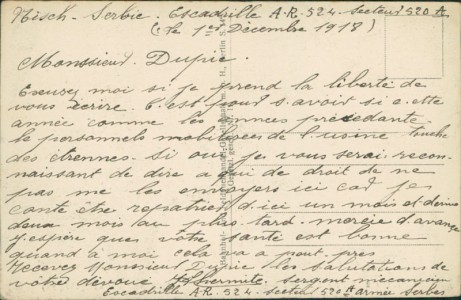 Nisch - Serbie. Escadrille A.R. 524. secteur 520 A
(le 1er Décembre 1918)
Monsieur Dupié.
Excusez moi si je prend la liberté de
vous écrire. C'est pour savoir si cette
année comme les années précédante
le personnels mobilisées de l'usine touche
des étrennes. si oui je vous serais recon-
naissant de dire a qui de droit de ne
pas me les envoyers ici car je
conte être repatrié d'ici un mois et demi
deux mois au plus tard. mercie d'avance
J'espère que votre santé est bonne
quand à moi cela va a peut près
Recevez Monsieur Dupié les salutations de
votre dévoué Lhermite. sergent mecanicien
Escadrille A.R. 524. secteur 520 A armée Serbes